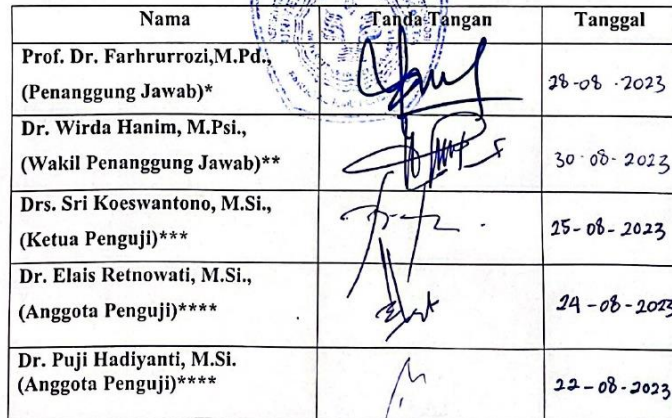 Nama Tanda Tangan Tanggal
Prof. Dr. Farhrurrozi,M.Pd.,
(Penanggung Jawab)* 28-08-2023
Dr. Wirda Hanim, M.Psi.,
(Wakil Penanggung Jawab)** 30-08-2023
Drs. Sri Koeswantono, M.Si.,
(Ketua Penguji)*** 25-08-2023
Dr. Elais Retnowati, M.Si.,
(Anggota Penguji)**** 24-08-2023
Dr. Puji Hadiyanti, M.Si.
(Anggota Penguji)**** 22-08-2023